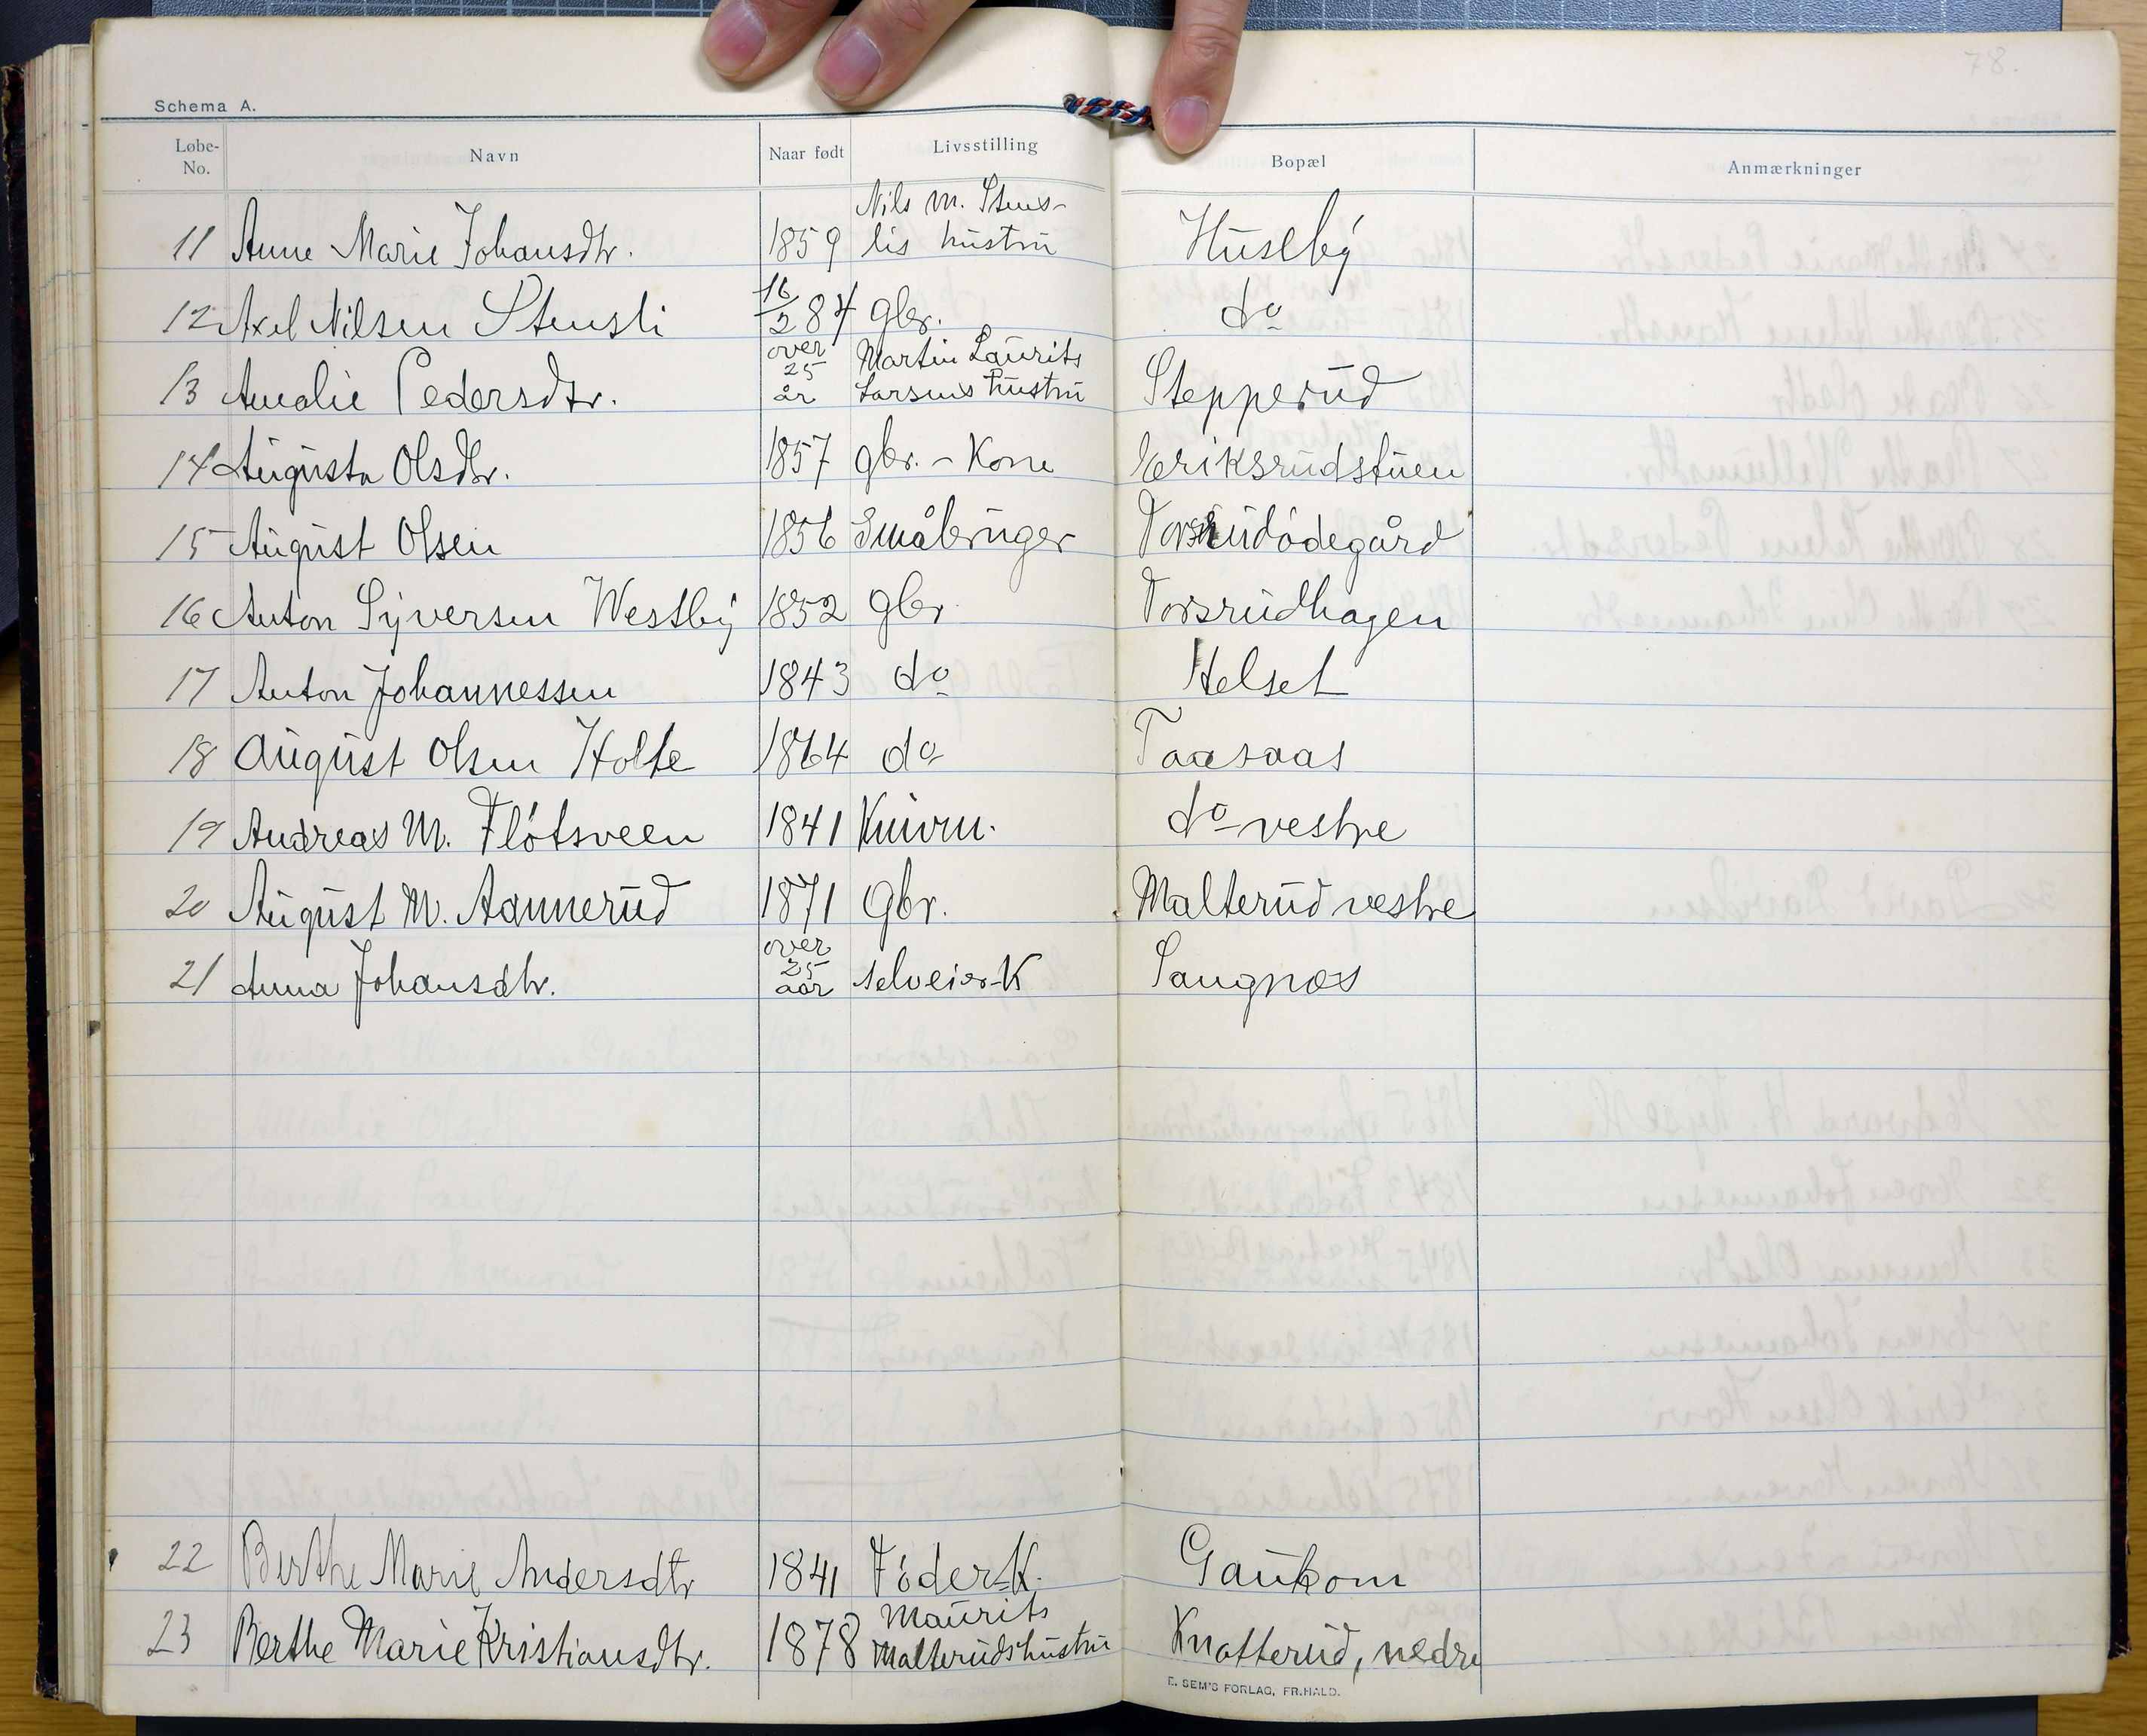 78.
Schema A.
Løbe-No. Navn Naar født Livsstilling Bopæl Anmærkninger
11 Anne Marie Johansdtr. 1859 Nils M. Stenslis hustru Huseby
12 Axel Nilsen Stensli 16/2 84 gbr. do
13 Amalie Pedersdtr. over 25 år Martin Laurits Larsens hustru Stepperud
14 Augusta Olsdtr. 1857 gbr. - Kone Eriksrudstuen
15 August Olsen 1856 Småbruger Torsrudödegård
16 Anton Syversen Westby 1852 gbr Torsrudhagen
17 Anton Johannessen 1843 do Helset
18 August Olsen Holte 1864 do Taasaas
19 Andreas M. Flötsveen 1841 do vestre
20 August M. Aannerud 1871 Gbr. Malterud vestre
21 Anna Johansdtr. over 25 aar selveier-K Saugnæs
22 Berthe Marie Andersdtr 1841 Föder-K. Gaukom
23 Berthe Marie Kristiansdtr. 1878 Maurits Malteruds hustru Knatterud, nedre
E. SEM'S FORLAG, FR.HALD.